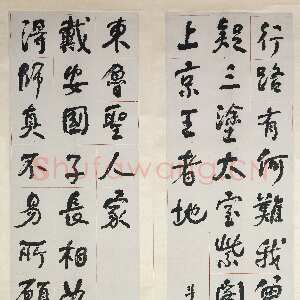 行路有何難我
疑三塗大室紫
上京王者地
東魯聖人家
戴安國子長相
得師真不易所願
Shufawang.cn